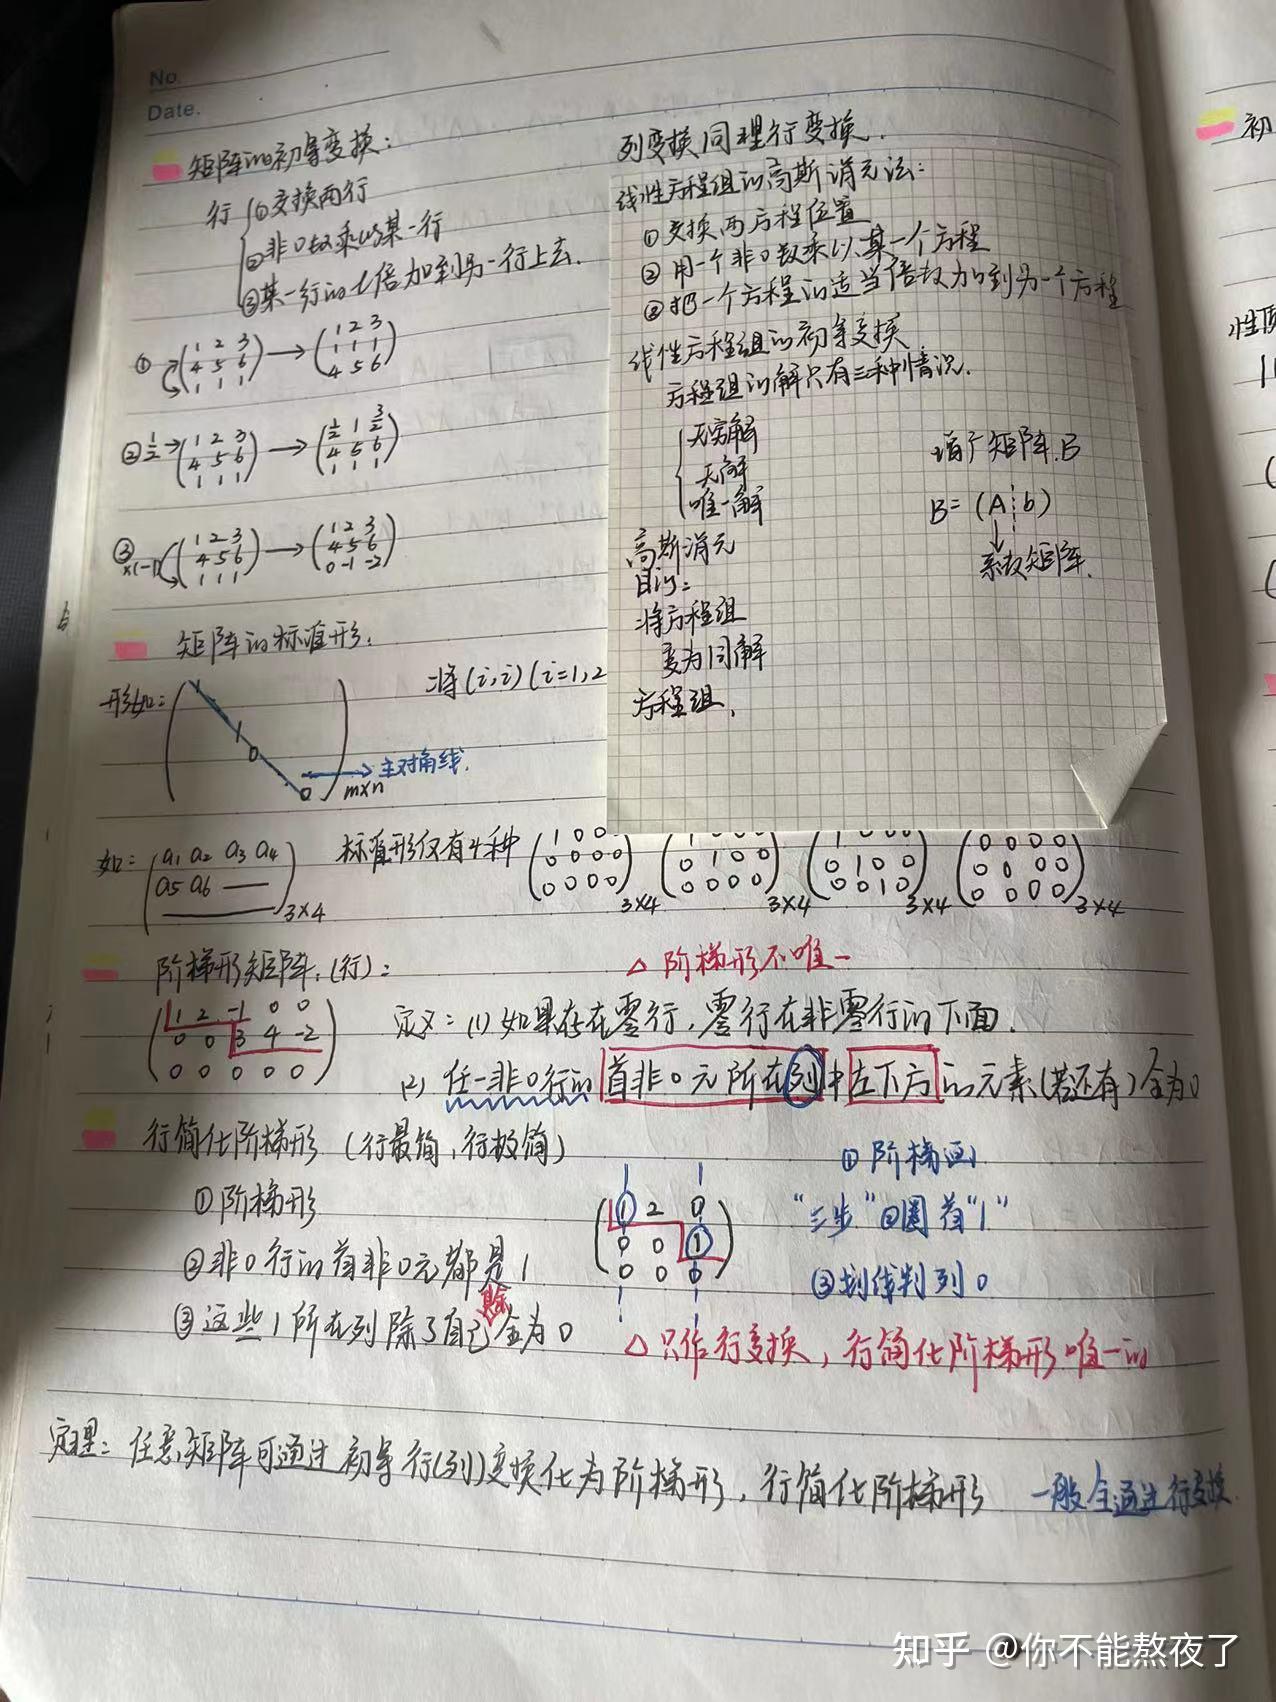 No.
Date.
矩阵的初等变换:
行 ①交换两行
②非0数乘以某一行
③某一行的l倍加到另一行上去.
① 1 2 3 → 1 2 3
4 5 6 1 1 1
1 1 1 4 5 6
② 1/2→ 1 2 3 → 1/2 1 3/2
4 5 6 4 5 6
1 1 1 1 1 1
③ ×(-1) 1 2 3 → 1 2 3
4 5 6 4 5 6
1 1 1 0 -1 -2
列变换同理行变换.
线性方程组的高斯消元法:
①交换两方程位置
②用一个非0数乘以某一个方程
③把一个方程的适当倍数加到另一个方程
线性方程组的初等变换
方程组的解只有三种情况.
无穷解
无解
唯一解
增广矩阵.B
B=(A⋮b)
系数矩阵.
高斯消元
目的:
将方程组
变为同解
方程组.
矩阵的标准形:
形如: 1 1 0 0 m×n
主对角线.
将(i,i)(i=1,2
如: a1 a2 a3 a4
a5 a6 —
3×4
标准形仅有4种
1 0 0
0 0 0 0
0 0 0 0
3×4
1 0 0
0 1 0 0
0 0 0 0
3×4
1 0 0 0
0 1 0 0
0 0 1 0
3×4
0 0 0 0
0 0 0 0
0 0 0 0
3×4
阶梯形矩阵.(行):
△ 阶梯形不唯一
1 2 -1 0 0
0 0 3 4 -2
0 0 0 0 0
定义:(1)如果存在零行,零行在非零行的下面.
(2)任一非0行的首非0元所在列中左下方的元素(若还有)全为0
行简化阶梯形(行最简,行极简)
①阶梯形
②非0行的首非0元都是1
③这些1所在列除了自己其余全为0
1 2 0
0 0 1
0 0 0
①阶梯画
"三步"②圈首"1"
③划线判列0
△只作行变换,行简化阶梯形唯一的
定理:任意矩阵可通过初等行(列)变换化为阶梯形,行简化阶梯形 一般全通过行变换.
初
性质
知乎 @你不能熬夜了